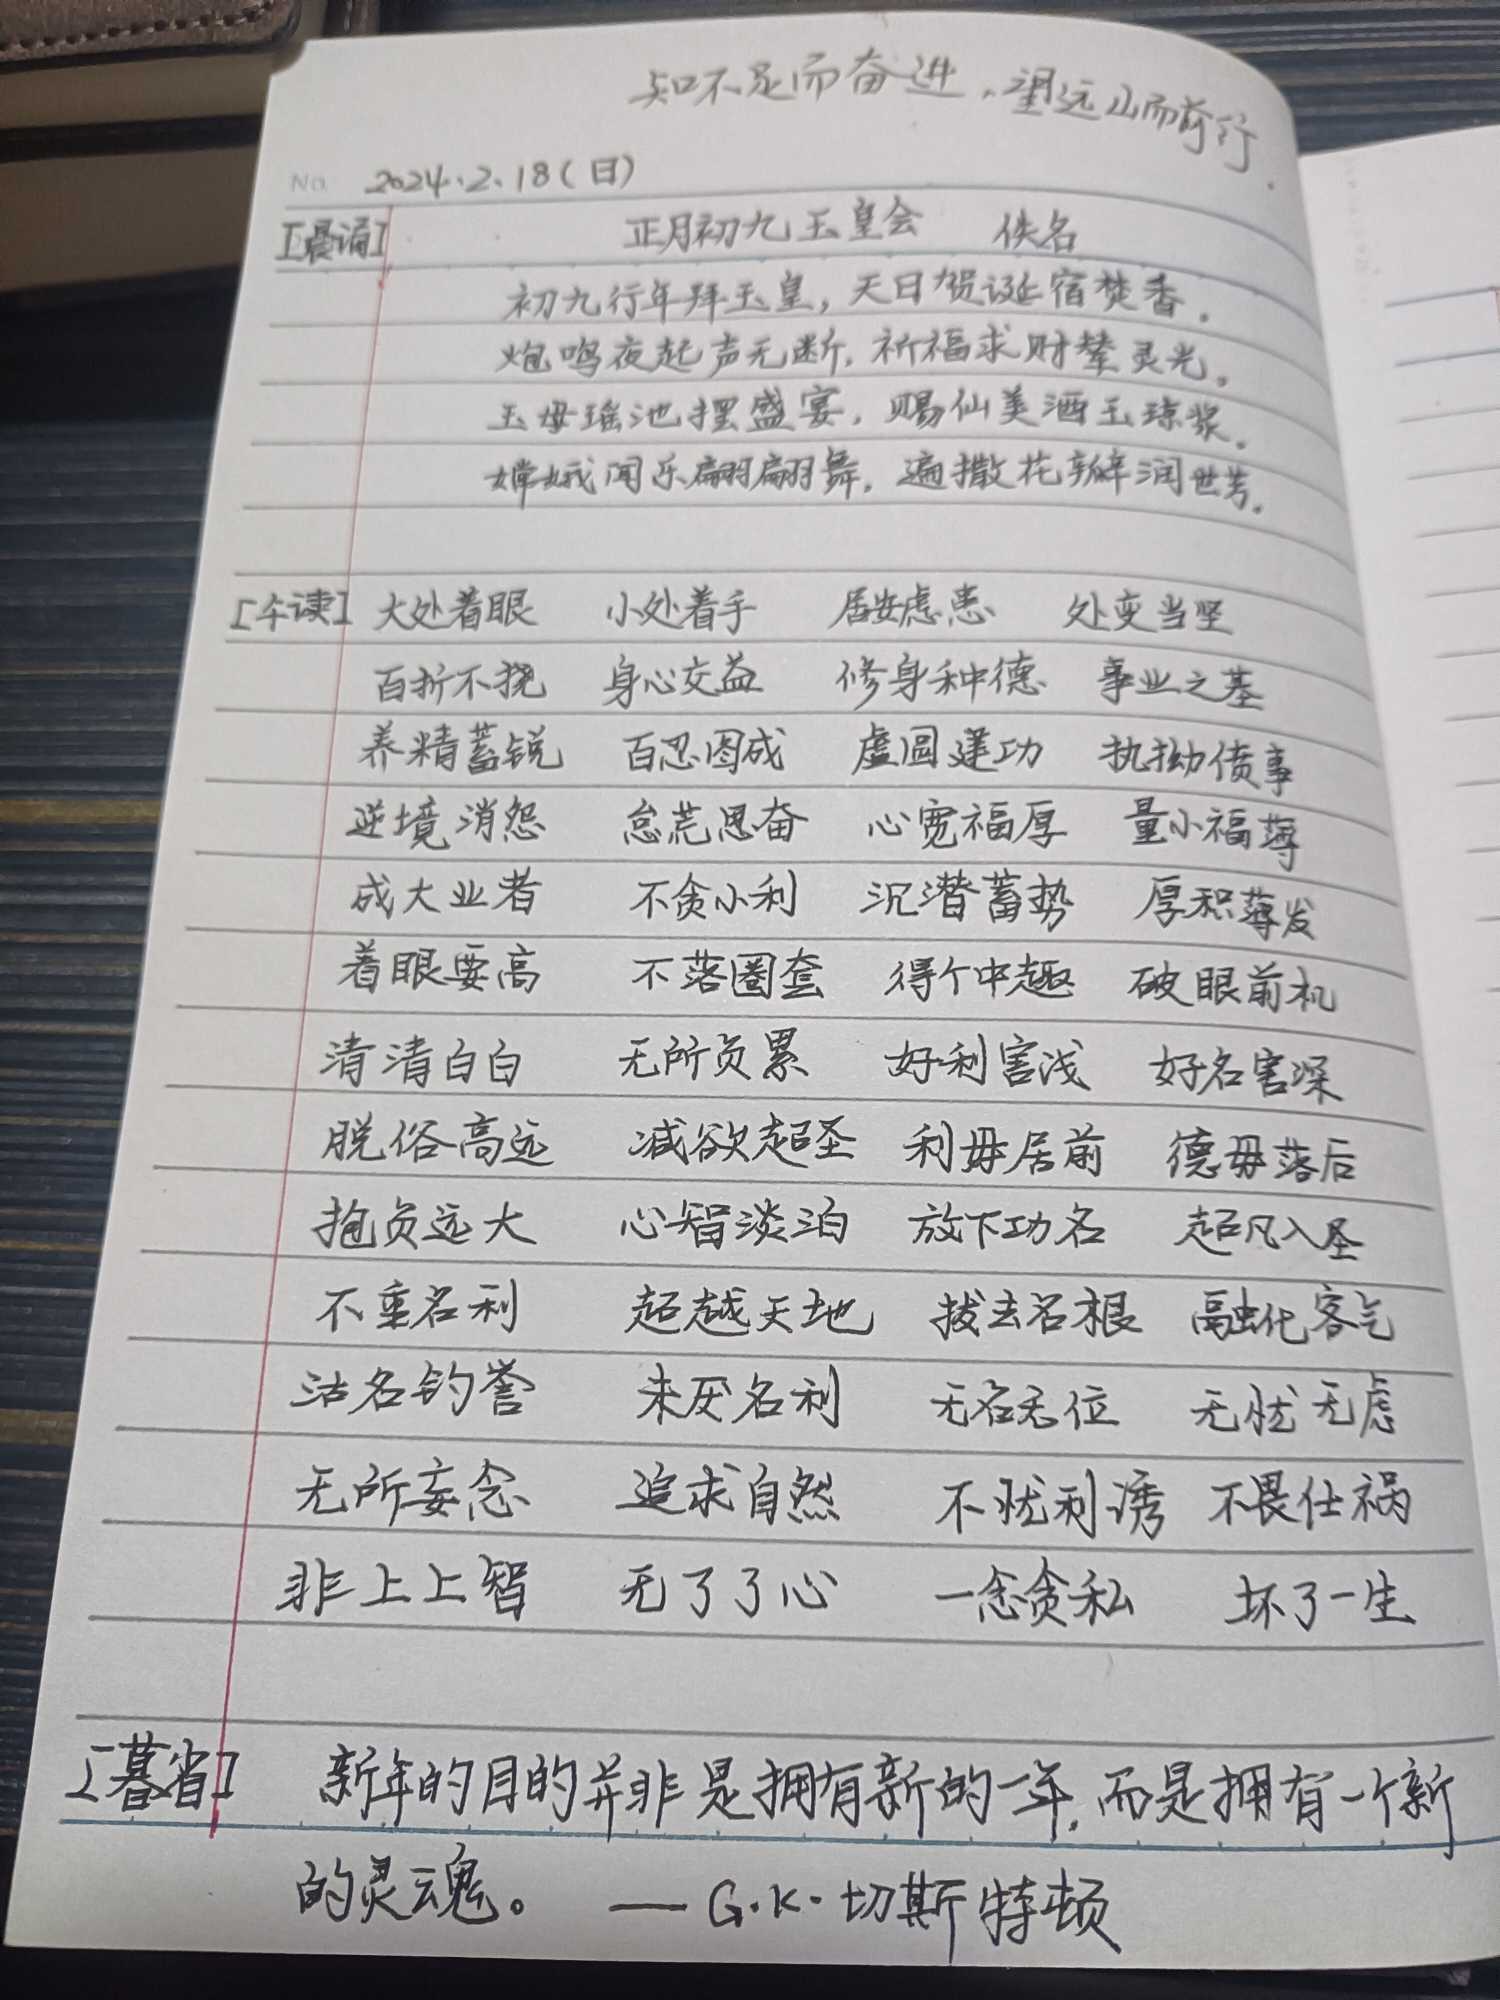 知不足而奋进，望远山而前行。
No. 2024.2.18(日)
[晨诵] 正月初九玉皇会 佚名
初九行年拜玉皇，天日贺诞宿焚香。
炮鸣夜起声无断，祈福求财辇灵光。
玉母瑶池摆盛宴，赐仙美酒玉琼浆。
嫦娥闻乐翩翩舞，遍撒花瓣润世芳。
[午读] 大处着眼 小处着手 居安虑患 处变当坚
百折不挠 身心交益 修身种德 事业之基
养精蓄锐 百忍图成 虚圆建功 执拗偾事
逆境消怨 怠荒思奋 心宽福厚 量小福薄
成大业者 不贪小利 沉潜蓄势 厚积薄发
着眼要高 不落圈套 得个中趣 破眼前机
清清白白 无所负累 好利害浅 好名害深
脱俗高远 减欲超圣 利毋居前 德毋落后
抱负远大 心智淡泊 放下功名 超凡入圣
不重名利 超越天地 拔去名根 融化客气
沽名钓誉 未厌名利 无名无位 无忧无虑
无所妄念 追求自然 不忧利诱 不畏仕祸
非上上智 无了了心 一念贪私 坏了一生
[暮省] 新年的目的并非是拥有新的一年，而是拥有一个新
的灵魂。 ——G.K.切斯特顿